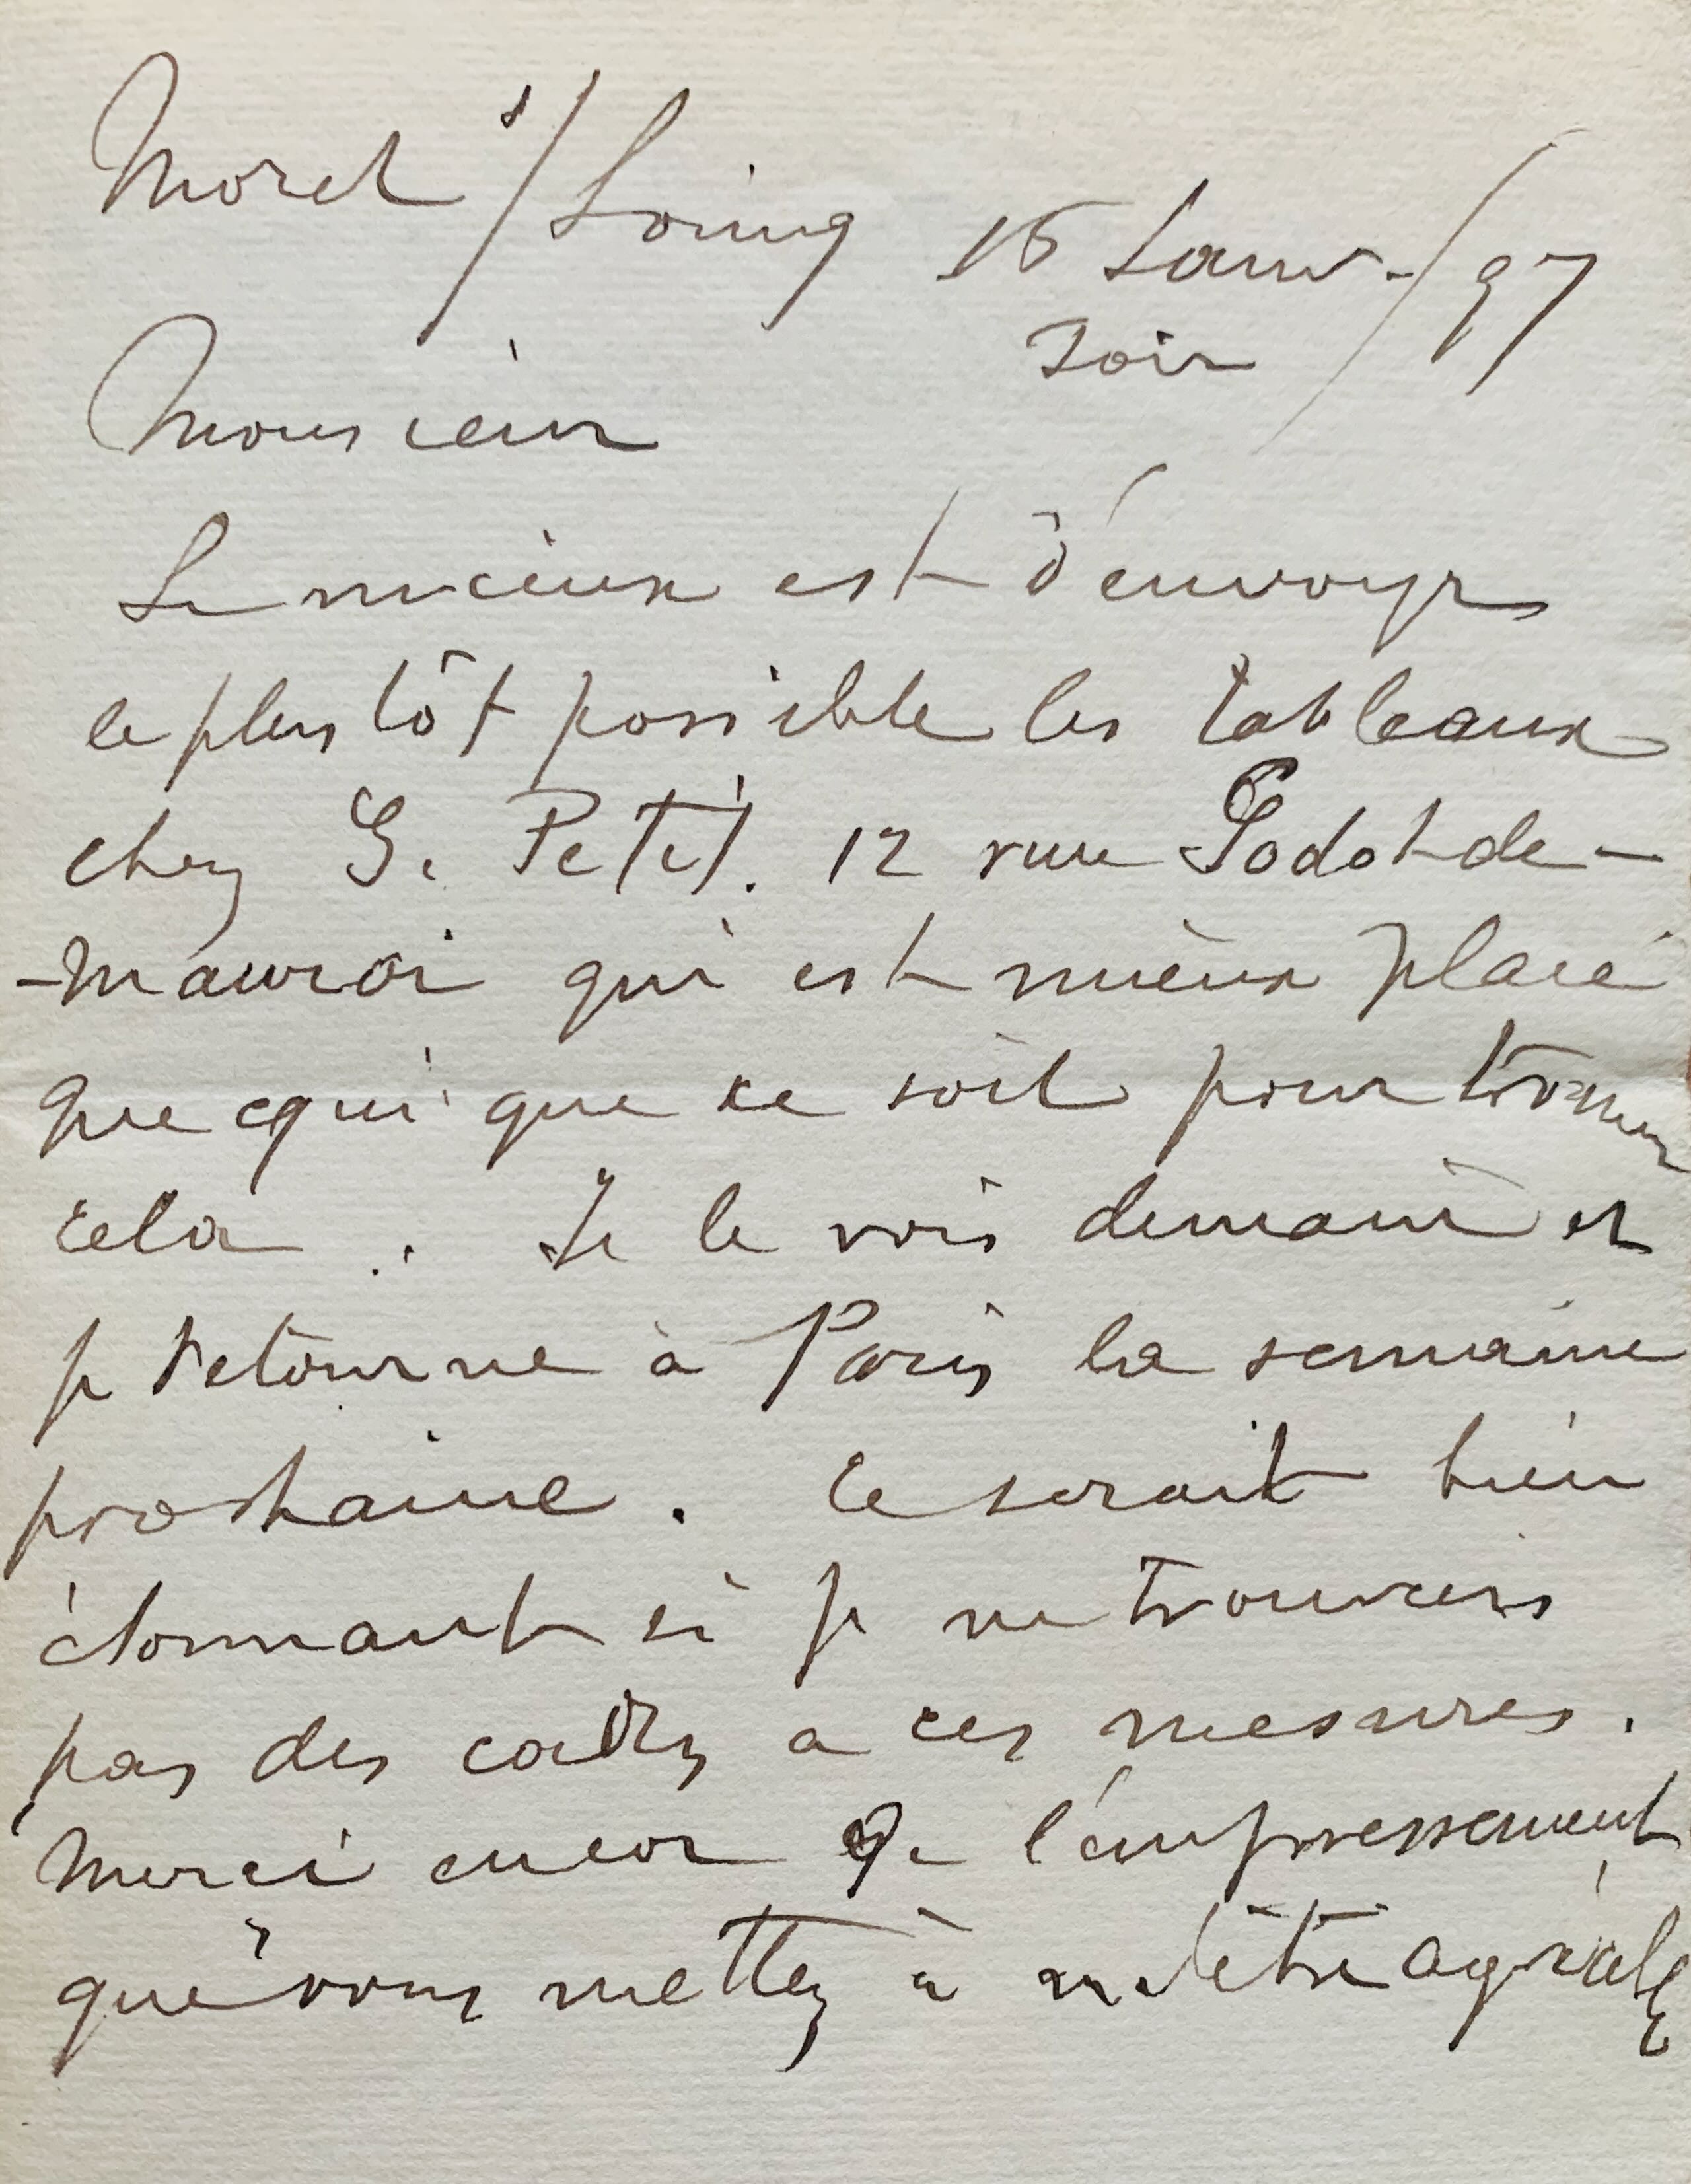 Moret s/ Loing 16 Janv-/97
soir
Monsieur
Le mieux est d'envoyer
le plus tôt possible les tableaux
chez G. Petit. 12 rue Godot-de-
-Mauroi qui est mieux placé
que qui que ce soit pour trouver
cela. Je le vois demain et
je retourne à Paris la semaine
prochaine. Ce serait bien
étonnant si je ne trouvais
pas des cadres a ces mesures.
Merci encor de l'empressement
que vous mettez à m'être agréable